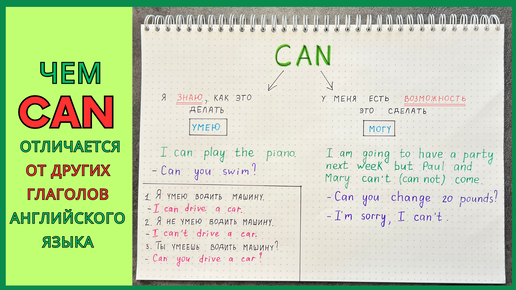 ЧЕМ
CAN
ОТЛИЧАЕТСЯ
ОТ ДРУГИХ
ГЛАГОЛОВ
АНГЛИЙСКОГО
ЯЗЫКА
CAN
Я ЗНАЮ, КАК ЭТО
ДЕЛАТЬ
УМЕЮ
I can play the piano.
- Can you swim?
1. Я УМЕЮ ВОДИТЬ МАШИНУ.
- I can drive a car.
2. Я НЕ УМЕЮ ВОДИТЬ МАШИНУ.
- I can't drive a car.
3. ТЫ УМЕЕШЬ ВОДИТЬ МАШИНУ?
- Can you drive a car?
У МЕНЯ ЕСТЬ ВОЗМОЖНОСТЬ
ЭТО СДЕЛАТЬ
МОГУ
I am going to have a party
next week but Paul and
Mary can't (can not) come.
- Can you change 20 pounds?
- I'm sorry, I can't.